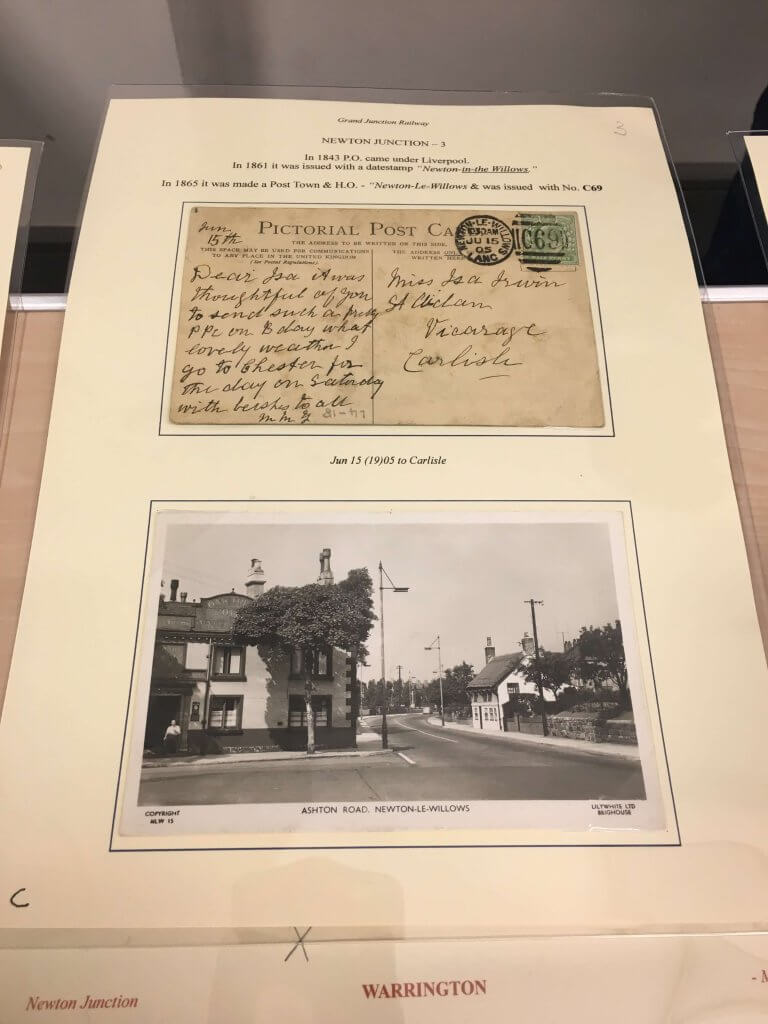 Grand Junction Railway
3
NEWTON JUNCTION – 3
In 1843 P.O. came under Liverpool.
In 1861 it was issued with a datestamp "Newton-in the Willows."
In 1865 it was made a Post Town & H.O. - "Newton-Le-Willows & was issued with No. C69
Jun. 15th
PICTORIAL POST CA
THE ADDRESS TO BE WRITTEN ON THIS SIDE.
THIS SPACE MAY BE USED FOR COMMUNICATIONS
TO ANY PLACE IN THE UNITED KINGDOM
(See Postal Regulations).
THE ADDRESS ONLY
WRITTEN HERE
NEWTON-LE-WILLOWS
JU 15
05
LANC
C69
Dear Isa it was
thoughtful of you
to send such a pretty
PPc on B day what
lovely weather I
go to Chester for
the day on Saturday
with to all
18-47
Miss Isa Irwin
St Aidan
Vicarage
Carlisle
Jun 15 (19)05 to Carlisle
COPYRIGHT
NLW 15
ASHTON ROAD, NEWTON-LE-WILLOWS
LILYWHITE LTD
BRIGHOUSE
C
X
Newton Junction
WARRINGTON
- M